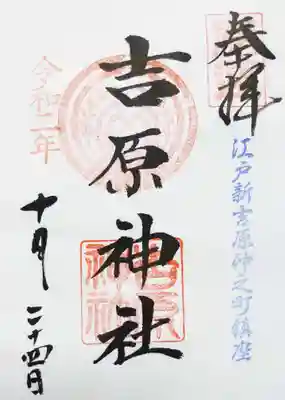 奉拝
江戸新吉原仲之町鎮座
吉原神社
吉原神社
令和二年
十月二十四日